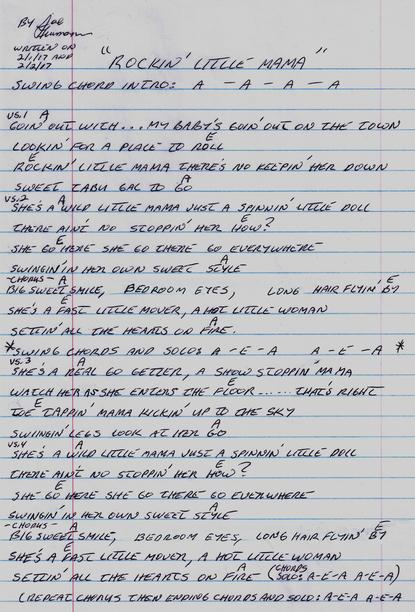 BY Joe
WRITTEN ON
2/1/17 AND
2/2/17
"ROCKIN' LITTLE MAMA"
SWING CHORD INTRO: A - A - A - A
VS.1 A
GOIN' OUT WITH... MY BABY'S GOIN' OUT ON THE TOWN
E
LOOKIN' FOR A PLACE TO ROLL
E
ROCKIN' LITTLE MAMA THERE'S NO KEEPIN' HER DOWN
A
SWEET TABU GAL TO GO
VS.2 A
SHE'S A WILD LITTLE MAMA JUST A SPINNIN' LITTLE DOLL
E
THERE AIN'T NO STOPPIN' HER HOW?
E
SHE GO HERE SHE GO THERE GO EVERYWHERE
A
SWINGIN' IN HER OWN SWEET STYLE
-CHORUS- A E
BIG SWEET SMILE, BEDROOM EYES, LONG HAIR FLYIN' BY
E
SHE'S A FAST LITTLE MOVER, A HOT LITTLE WOMAN
A
SETTIN' ALL THE HEARTS ON FIRE.
*SWING CHORDS AND SOLO: A - E - A A - E - A *
VS.3 A
SHE'S A REAL GO GETTER, A SHOW STOPPIN' MAMA
E
WATCH HER AS SHE ENTERS THE FLOOR...... THAT'S RIGHT
E
TOE TAPPIN' MAMA KICKIN' UP TO THE SKY
A
SWIINGIN' LEGS LOOK AT HER GO
VS.4 A
SHE'S A WILD LITTLE MAMA JUST A SPINNIN' LITTLE DOLL
E
THERE AIN'T NO STOPPIN' HER HOW?
E
SHE GO HERE SHE GO THERE GO EVERWHERE
A
SWINGIN' IN HER OWN SWEET STYLE
-CHORUS- A E
BIG SWEET SMILE, BEDROOM EYES, LONG HAIR FLYIN' BY
E
SHE'S A FAST LITTLE MOVER, A HOT LITTLE WOMAN
A
SETTIN' ALL THE HEARTS ON FIRE (CHORDS SOLO: A-E-A A-E-A)
(REPEAT CHORUS THEN ENDING CHORDS AND SOLO: A-E-A A-E-A